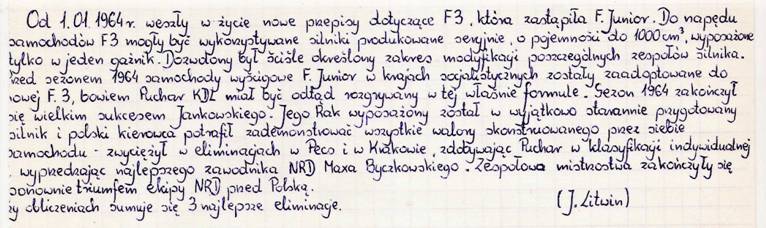 Od 1.01.1964 r. weszły w życie nowe przepisy dotyczące F3, która zastąpiła F. Junior. Do napędu
samochodów F3 mogły być wykorzystywane silniki produkowane seryjnie, o pojemności do 1000 cm³, wyposażone
tylko w jeden gaźnik. Dozwolony był ściśle określony zakres modyfikacji poszczególnych zespołów silnika.
rzed sezonem 1964 samochody wyścigowe F. Junior w krajach socjalistycznych zostały zaadaptowane do
nowej F.3, bowiem Puchar KDL miał być odtąd rozgrywany w tej właśnie formule. Sezon 1964 zakończył
się wielkim sukcesem Jankowskiego. Jego Rak wyposażony został w wyjątkowo starannie przygotowany
silnik i polski kierowca potrafił zademonstrować wszystkie walory skonstruowanego przez siebie
samochodu - zwyciężył w eliminacjach w Pecs i w Krakowie, zdobywając Puchar w klasyfikacji indywidualnej
i wyprzedzając najlepszego zawodnika NRD Maxa Byczkowskiego. Zespołowe mistrzostwa zakończyły się
ponownie triumfem ekipy NRD przed Polską.
zy obliczeniach sumuje się 3 najlepsze eliminacje. (J. Litwin)